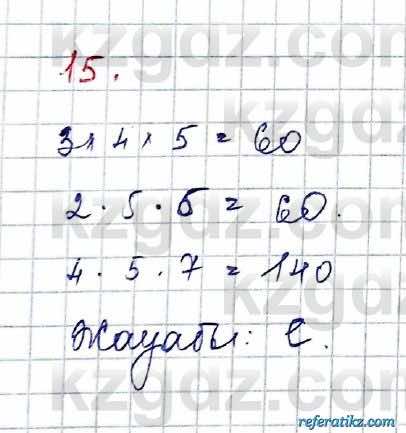 15.
3 × 4 × 5 = 60
2 · 5 · 6 = 60.
4 · 5 · 7 = 140
Жауабы: C.
referatikz.com